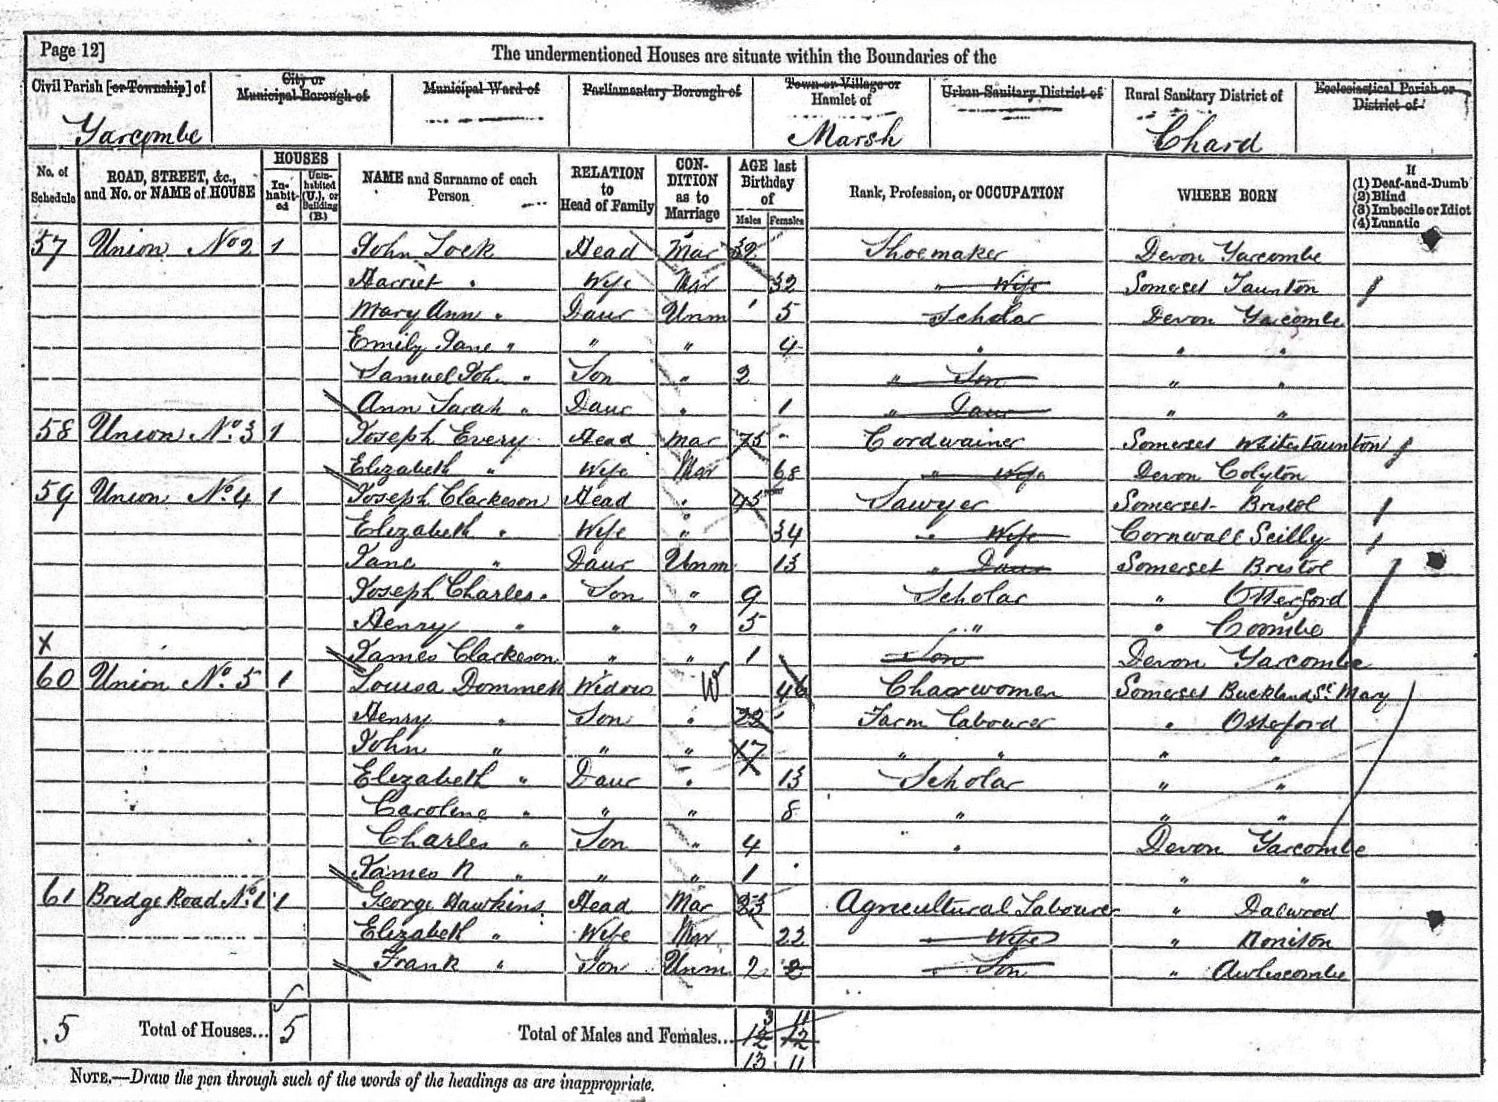 Page 12]
The undermentioned Houses are situate within the Boundaries of the
Civil Parish [or Township] of
City or Municipal Borough of
Municipal Ward of
Parliamentary Borough of
Town or Village or Hamlet of
Urban Sanitary District of
Rural Sanitary District of
Ecclesiastical Parish or District of
Yarcombe Marsh Chard
No. of Schedule
ROAD, STREET, &c., and No. or NAME of HOUSE
HOUSES
In-habit-ed
Unin-habited (U.), or Building (B.)
NAME and Surname of each Person
RELATION to Head of Family
CON-DITION as to Marriage
AGE last Birthday of
Males Females
Rank, Profession, or OCCUPATION
WHERE BORN
If
(1) Deaf-and-Dumb
(2) Blind
(3) Imbecile or Idiot
(4) Lunatic
57 Union No 2 1 John Lock Head Mar 32 Shoemaker Devon Yarcombe
Harriet " Wife Mar 32 " Wife Somerset Taunton
Mary Ann " Daur Unm 5 Scholar Devon Yarcombe
Emily Jane " " " 4 " " "
Samuel Joh " Son " 2 " Son " "
Ann Sarah " Daur " 1 " Daur " "
58 Union No. 3 1 Joseph Every Head Mar 75 Cordwainer Somerset Whitestaunton
Elizabeth " Wife Mar 68 " Wife Devon Colyton
59 Union No. 4 1 Joseph Clarkeson Head " 45 Sawyer Somerset Bristol
Elizabeth " Wife " 34 " Wife Cornwall Scilly
Jane " Daur Unm 13 " Daur Somerset Bristol
Joseph Charles " Son " 9 Scholar " Otterford
Henry " " " 5 " " Coombe
X James Clarkeson " " 1 Son Devon Yarcombe
60 Union No. 5 1 Louisa Dommett Widow W 46 Charwomen Somerset Buckland St Mary
Henry " Son " 22 Farm Labourer " Otterford
John " " " 17 " " " "
Elizabeth " Daur " 13 Scholar " "
Caroline " " " 8 " " "
Charles " Son " 4 " Devon Yarcombe
James R " " " 1 " "
61 Bridge Road No. 1 1 George Hawkins Head Mar 23 Agricultural Labourer " Dalwood
Elizabeth " Wife Mar 22 Wife " Honiton
Frank " Son Unm 2 2 " Son " Awliscombe
5 Total of Houses... 5 Total of Males and Females... 12 12
3 11
13 11
NOTE.—Draw the pen through such of the words of the headings as are inappropriate.